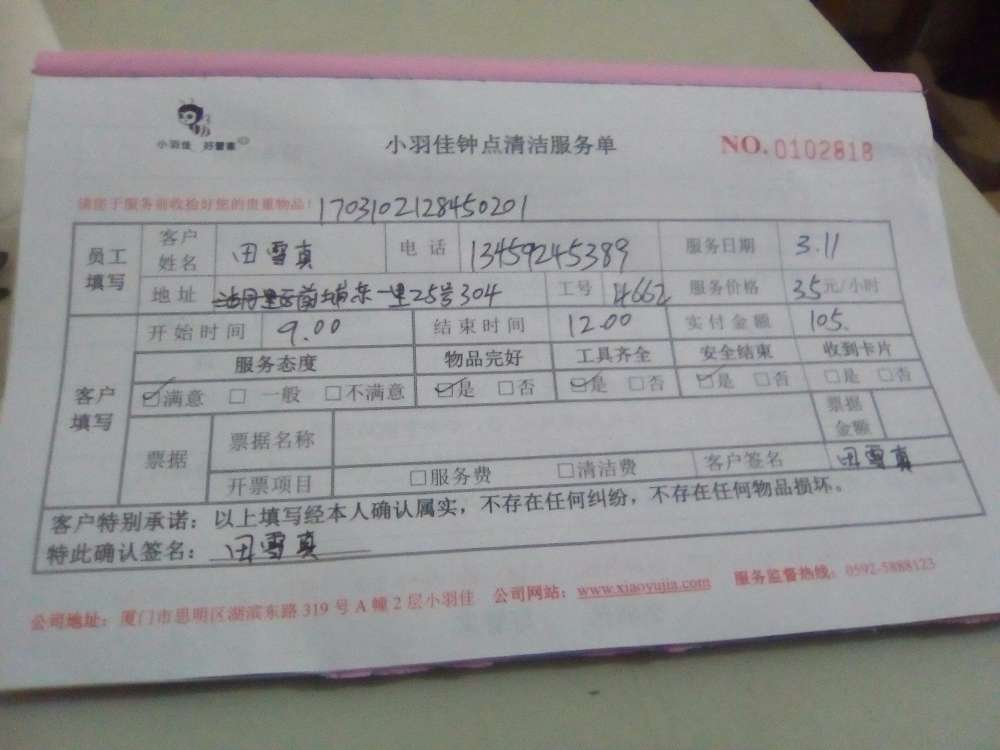 小羽佳 好管家
小羽佳钟点清洁服务单
NO.0102818
请您于服务前收捡好您的贵重物品!
1703102128450201
员工填写 客户姓名 田雪真 电话 13459245389 服务日期 3.11
地址 前埔东里25号304 工号 4662 服务价格 35元/小时
客户填写 开始时间 9.00 结束时间 12.00 实付金额 105.
服务态度 物品完好 工具齐全 安全结束 收到卡片
☑满意 □一般 □不满意 ☑是 □否 ☑是 □否 ☑是 □否 □是 □否
票据 票据名称 票据金额
开票项目 □服务费 □清洁费 客户签名 田雪真
客户特别承诺:以上填写经本人确认属实,不存在任何纠纷,不存在任何物品损坏。
特此确认签名:田雪真
公司地址:厦门市思明区湖滨东路319号A幢2层小羽佳 公司网站:www.xiaoyujia.com 服务监督热线:0592-5888123